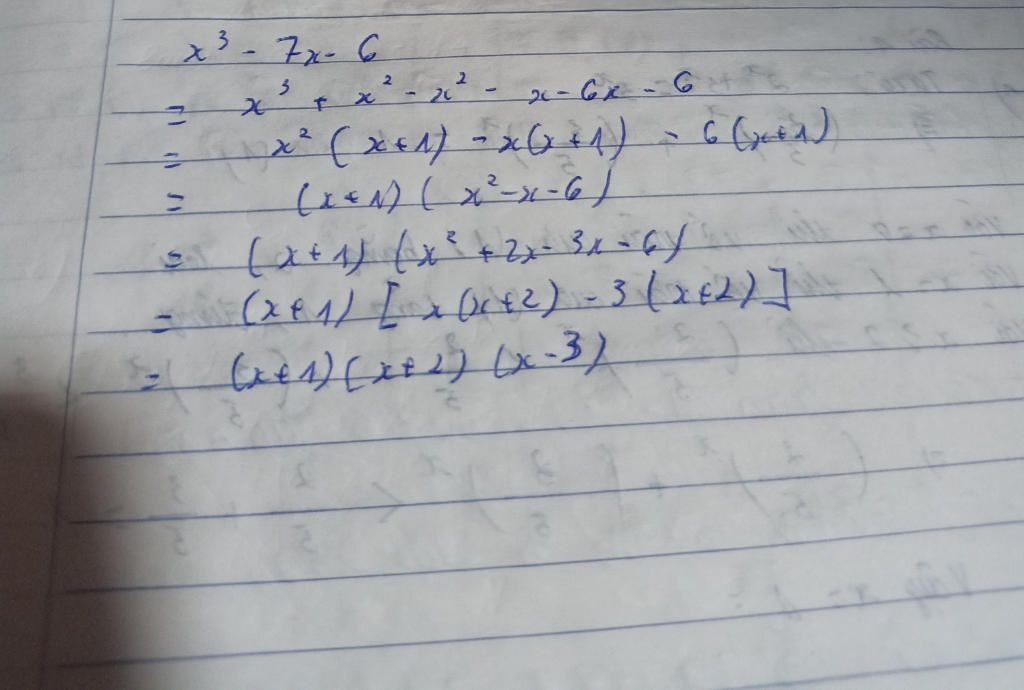 x³ - 7x - 6
= x³ + x² - x² - x - 6x - 6
= x² (x+1) - x(x+1) - 6(x+1)
= (x+1) (x² - x - 6)
= (x+1) (x² + 2x - 3x - 6)
= (x+1) [x(x+2) - 3(x+2)]
= (x+1)(x+2) (x-3)